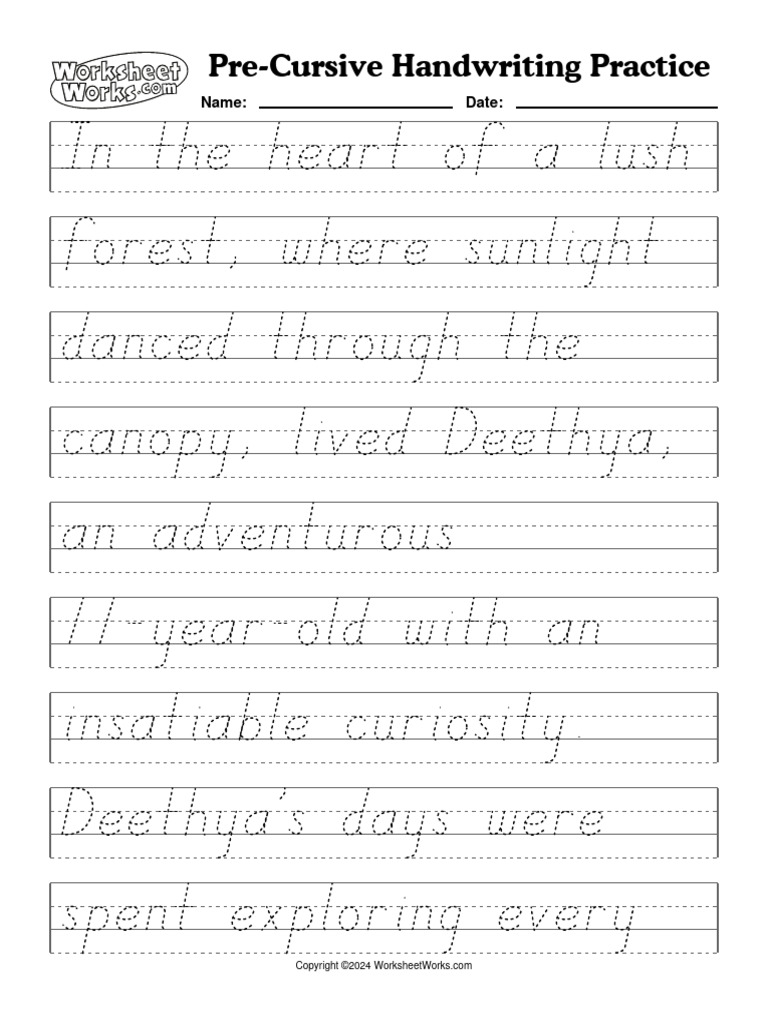 Worksheet
Works.com
Pre-Cursive Handwriting Practice
Name: Date:
In the heart of a lush
forest, where sunlight
danced through the
canopy, lived Deethya,
an adventurous
11-year-old with an
insatiable curiosity.
Deethya's days were
spent exploring every
Copyright ©2024 WorksheetWorks.com